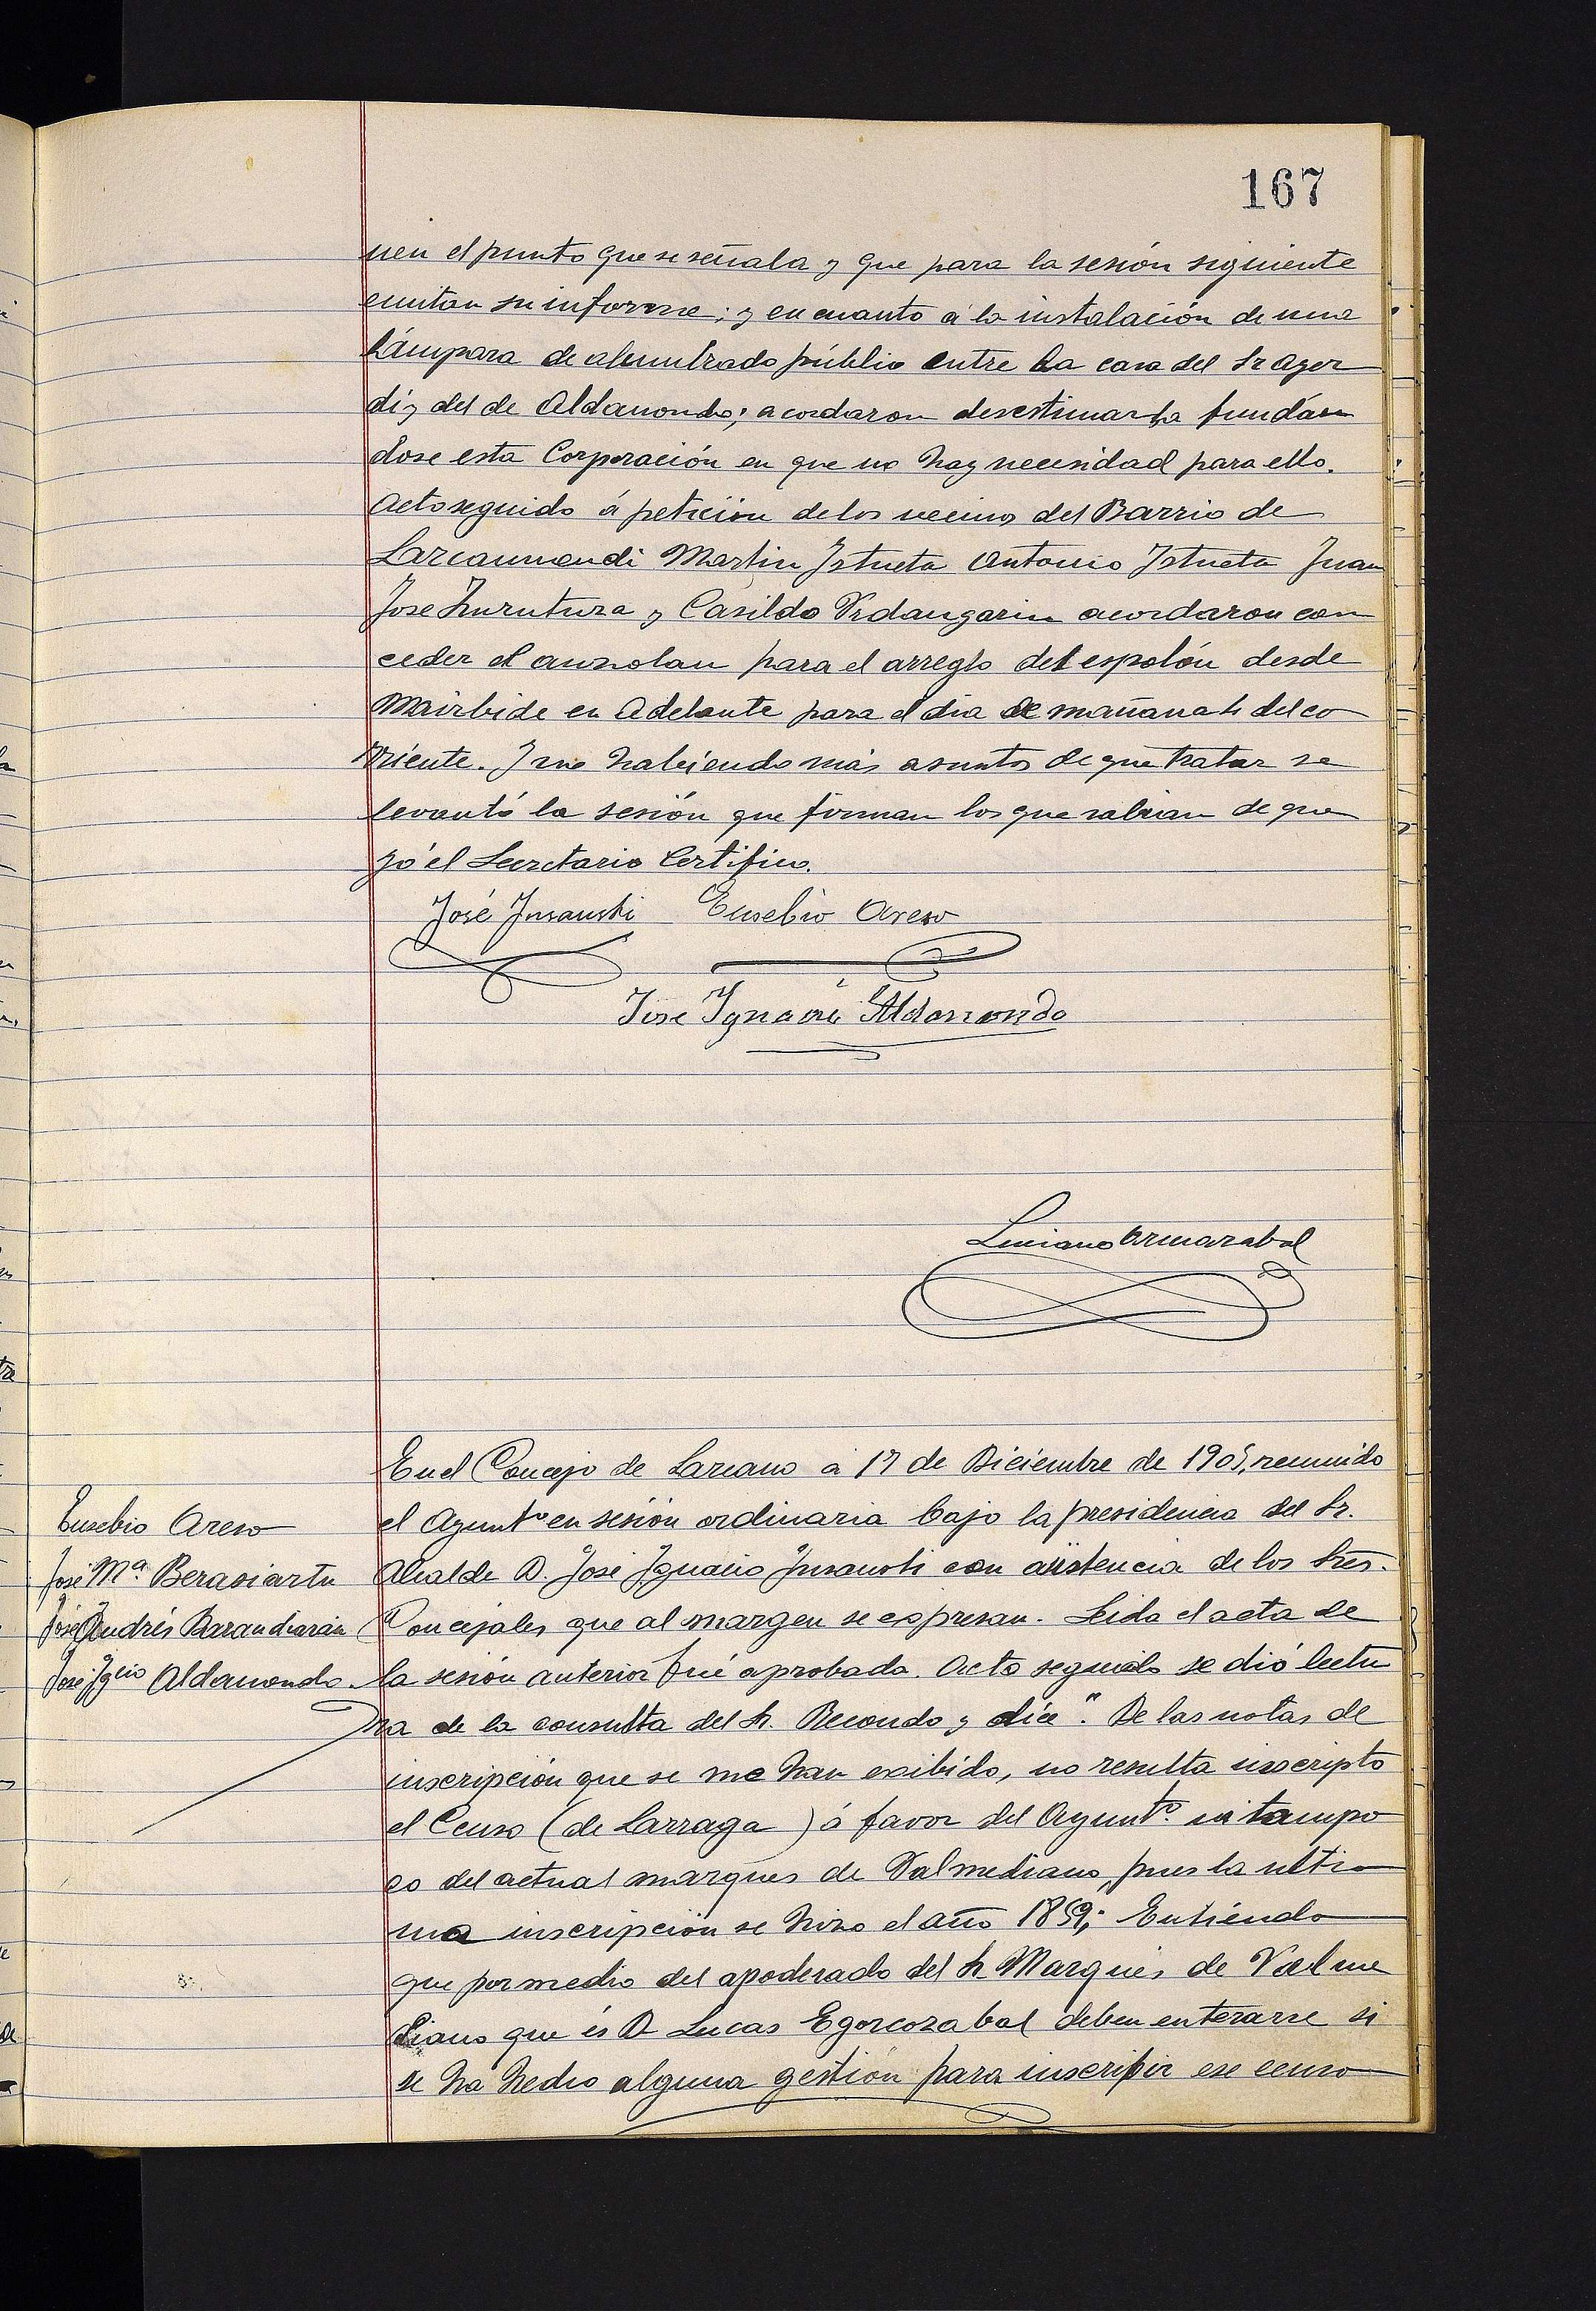 167
nen el punto que se señala y que para la sesión siguiente
emitan su informe; y en cuanto á la instalación de una
Lámpara de alumbrado público entre la casa del Sr Ager
di y del de Aldanondo; acordaron desestimarla fundán
dose esta Corporación en que no hay necesidad para ello.
Acto seguido á petición de los vecinos del Barrio de
Lazcaumendi Martin Iztueta Antonio Iztueta Juan
Jose Zurutuza y Casildo Urdangarin acordaron con
ceder el auzolan para el arreglo del espolón desde
Mairbide en adelante para el dia de mañana 4 del co
rriente. Y no habiendo más asuntos de que tratar se
levantó la sesión que firman los que sabian de que
yó el Secretario Certifico.
José Insausti Eusebio Areso
Jose Ignacio Aldanondo
Luciano Armazabal
En el Concejo de Lazcano á 17 de Diciembre de 1905, reunido
el Ayuntº en sesión ordinaria bajo la presidencia del Sr.
Alcalde D. José Ignacio Insausti con asistencia de los Sres.
Concejales que al margen se expresan. Leida el acta de
la sesión anterior fué aprobada. Acto seguido se dió lectu
ra de la consulta del Sr. Recondo y dice". De las notas de
inscripción que se me han exibido, no resulta inscripto
el Censo (de Larraga) á favor del Ayuntº ni tampo
co del actual marques de Valmediano, pues la ulti
ma inscripción se hizo el año 1859; Entiendo
que por medio del apoderado del Sr Marqués de Valme
diano que és D Lucas Egorcozabal deben enterarse si
se ha hecho alguna gestión para inscribir ese censo
Eusebio Areso
José Mª Berasiartu
José Andrés Barandiarán
José Igcio Aldanondo